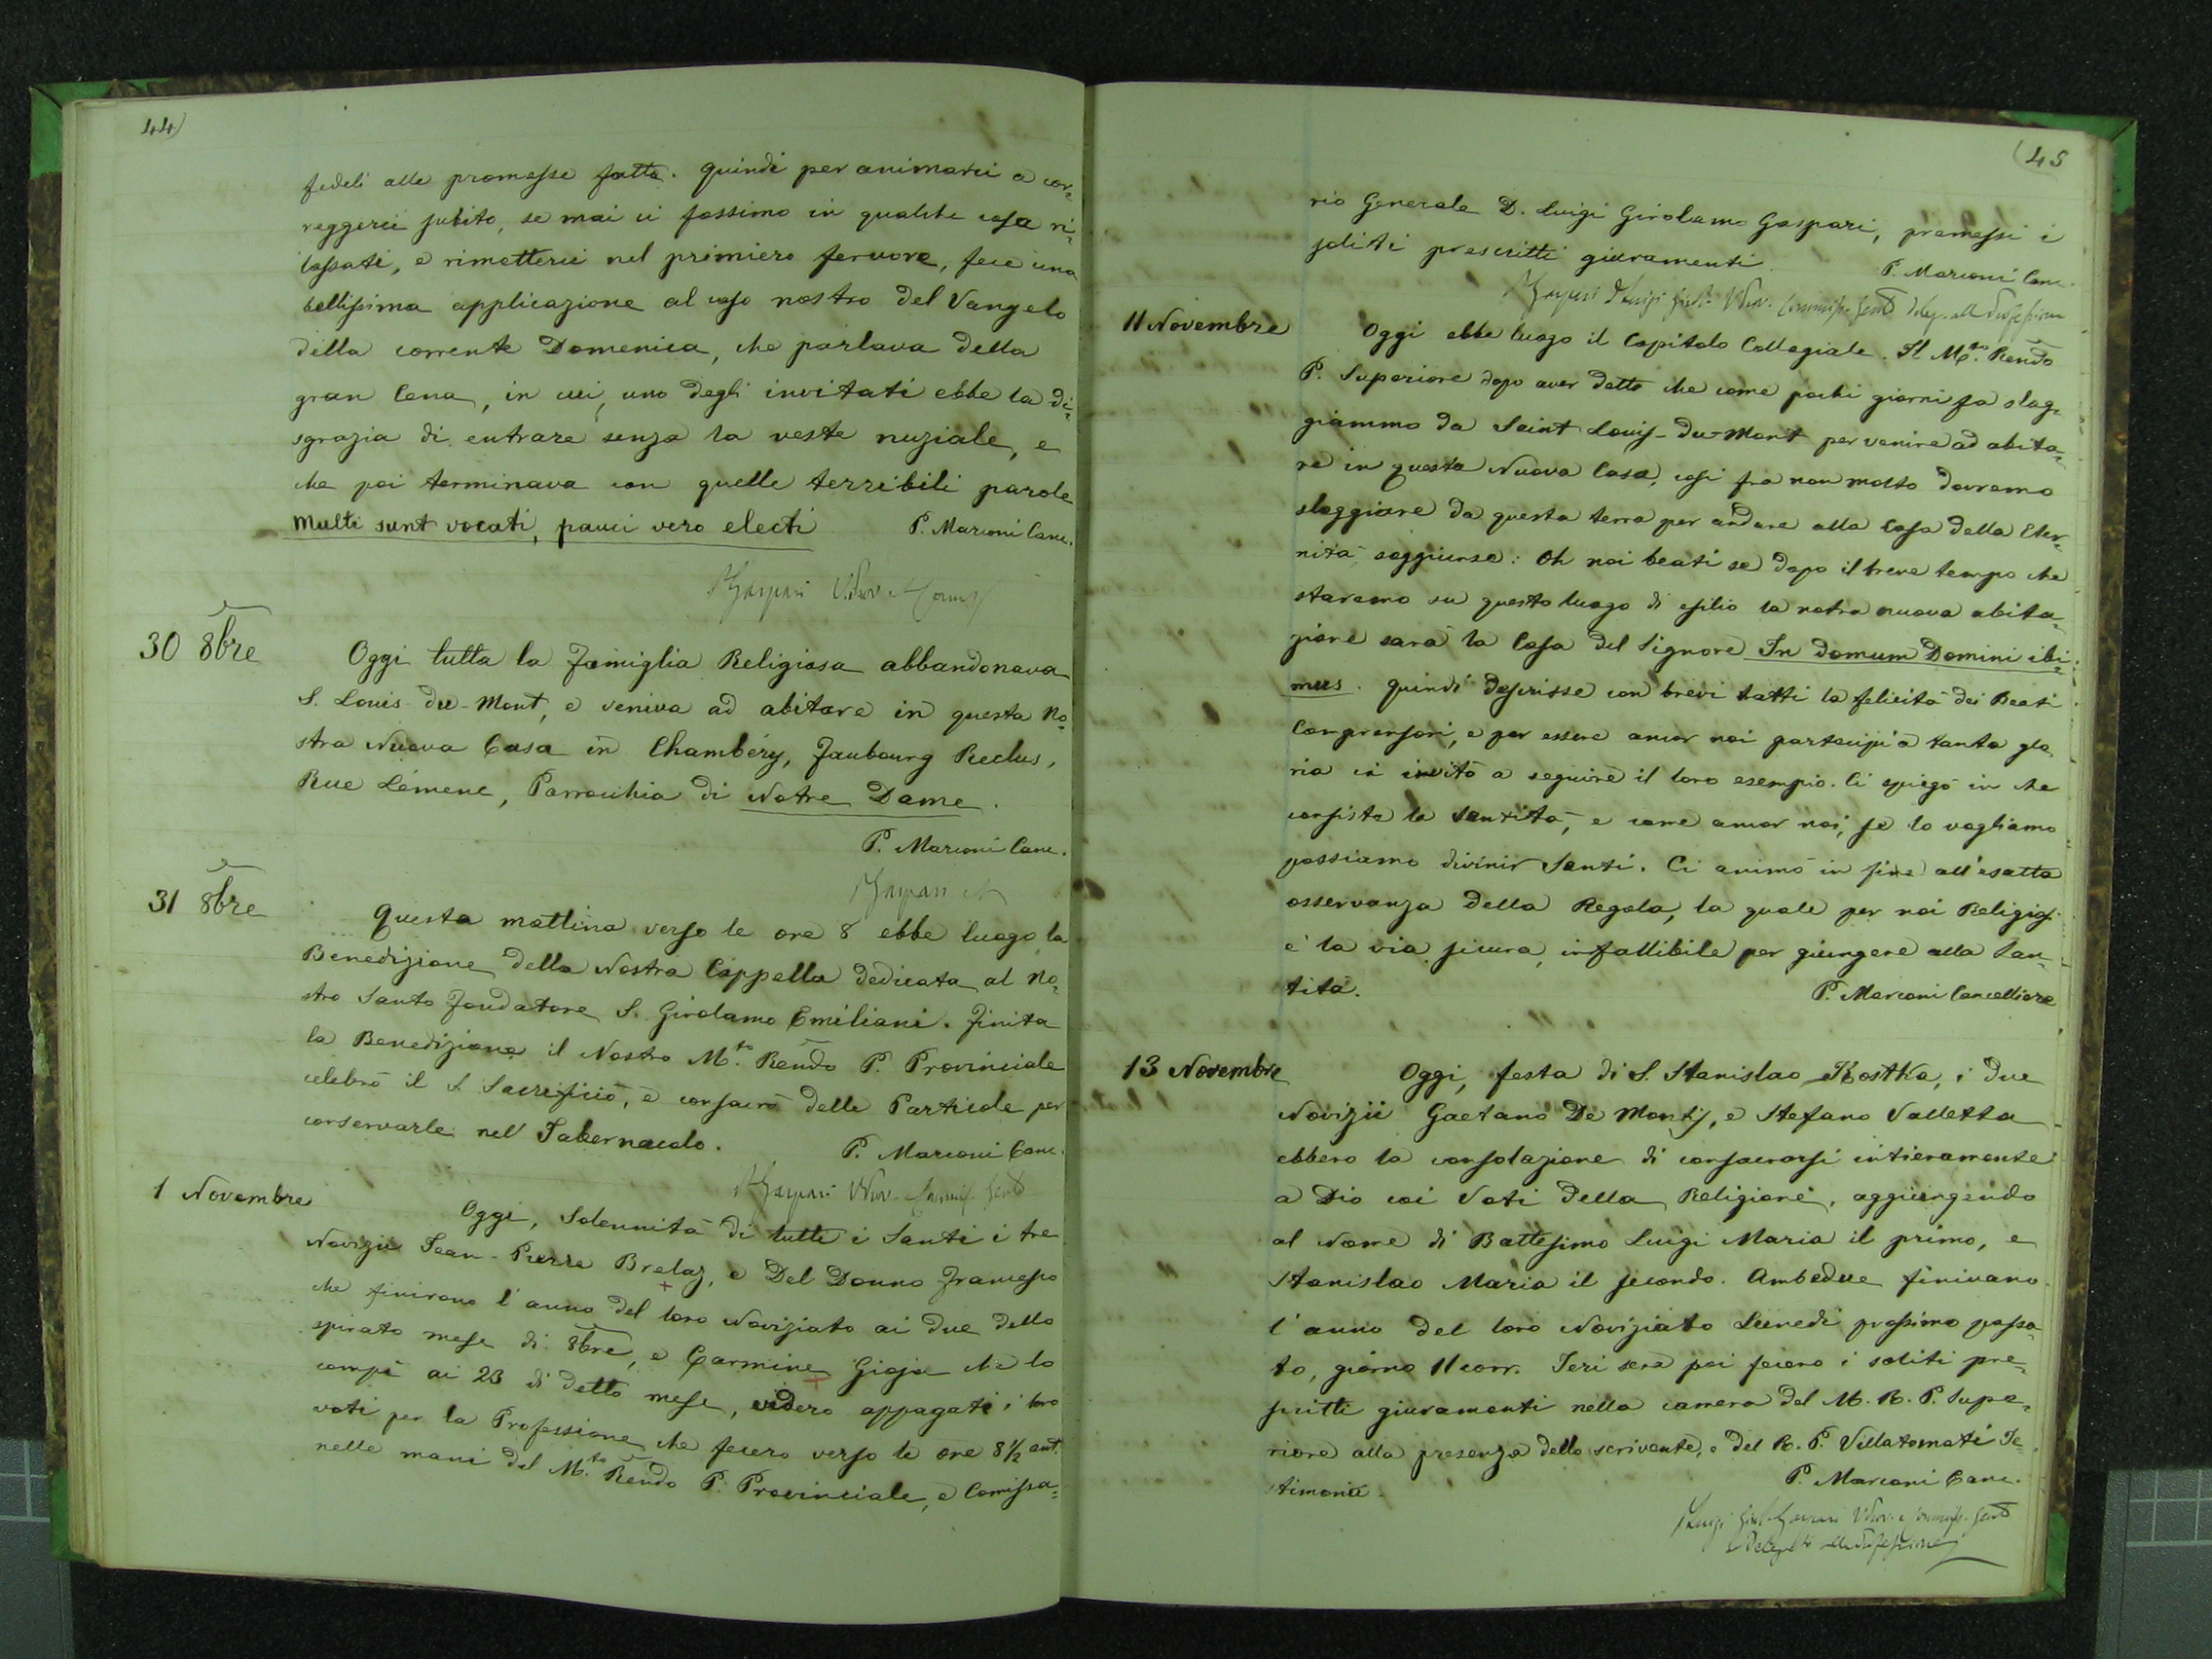 44)
fedeli alle promesse fatte. Quindi per animarci a cor-
reggerci subito, se mai ci fossimo in qualche cosa ri-
lassati, e rimetterci nel primiero fervore, fece una
bellissima applicazione al caso nostro del Vangelo
della corrente Domenica, che parlava della
gran Cena, in cui, uno degli invitati ebbe la di-
sgrazia di entrare senza la veste nuziale, e
che poi terminava con quelle terribili parole
Multi sunt vocati, pauci vero electi P. Marconi Canc.
Gaspari
30 8bre
Oggi tutta la Famiglia Religiosa abbandonava
S. Louis-du-Mont, e veniva ad abitare in questa No-
stra Nuova Casa in Chambéry, Faubourg Reclus,
Rue Lémenc, Parrocchia di Notre Dame.
P. Marconi Canc.
Gaspari
31 8bre
Questa mattina verso le ore 8 ebbe luogo la
Benedizione della Nostra Cappella dedicata al No-
stro Santo Fondatore S. Girolamo Emiliani. Finita
la Benedizione il Nostro M.to Rendo P. Provinciale
celebrò il S. Sacrificio, e consacrò delle Particole per
conservarle nel Tabernacolo. P. Marconi Canc.
Gaspari
1 Novembre
Oggi, Solennità di tutti i Santi i tre
Novizii Jean-Pierre Brelaz, e Del Donno Francesco
che finirono l'anno del loro Noviziato ai due dello
spirato mese di 8bre, e Carmine Gioja che lo
compì ai 23 di detto mese, videro appagati i loro
voti per la Professione che fecero verso le ore 8½ ant.
nelle mani del M.to Rendo P. Provinciale, e Comissa-
(45
rio Generale D. Luigi Girolamo Gaspari, premessi i
soliti prescritti giuramenti. P. Marconi Canc.
Gaspari D. Luigi
11 Novembre
Oggi ebbe luogo il Capitolo Collegiale. Il M.to Rendo
P. Superiore dopo aver detto che come pochi giorni fa slog-
giammo da Saint Louis-du-Mont per venire ad abita-
re in questa Nuova Casa, così fra non molto dovremo
sloggiare da questa terra per andare alla Casa della Eter-
nità soggiunse: Oh noi beati se dopo il breve tempo che
staremo su questo luogo di esilio la nostra nuova abita-
zione sarà la Casa del Signore In domum Domini ibi-
mus. Quindi descrisse con brevi tratti la felicità dei Beati
Comprensori, e per essere ancor noi partecipi a tanta glo-
ria ci invitò a seguire il loro esempio. Ci spiegò in che
consista la santità, e come ancor noi, se lo vogliamo
possiamo divinir Santi. Ci animò in fine all'esatta
osservanza della Regola, la quale per noi Religiosi
è la via sicura, infallibile per giungere alla San-
tità. P. Marconi Cancelliere
13 Novembre
Oggi, festa di S. Stanislao Kostka, i due
Novizii Gaetano De Montis, e Stefano Valletta
ebbero la consolazione di consacrarsi intieramente
a Dio coi Voti della Religione, aggiungendo
al Nome di Battesimo Luigi Maria il primo, e
Stanislao Maria il secondo. Ambedue finivano
l'anno del loro Noviziato Lunedì prossimo passa-
to, giorno 11 corr. Jeri sera poi fecero i soliti pre-
scritti giuramenti nella camera del M. R. P. Supe-
riore alla presenza dello scrivente, e del R. P. Villatomati Te-
stimonii. P. Marconi Canc.
Luigi Gaspari